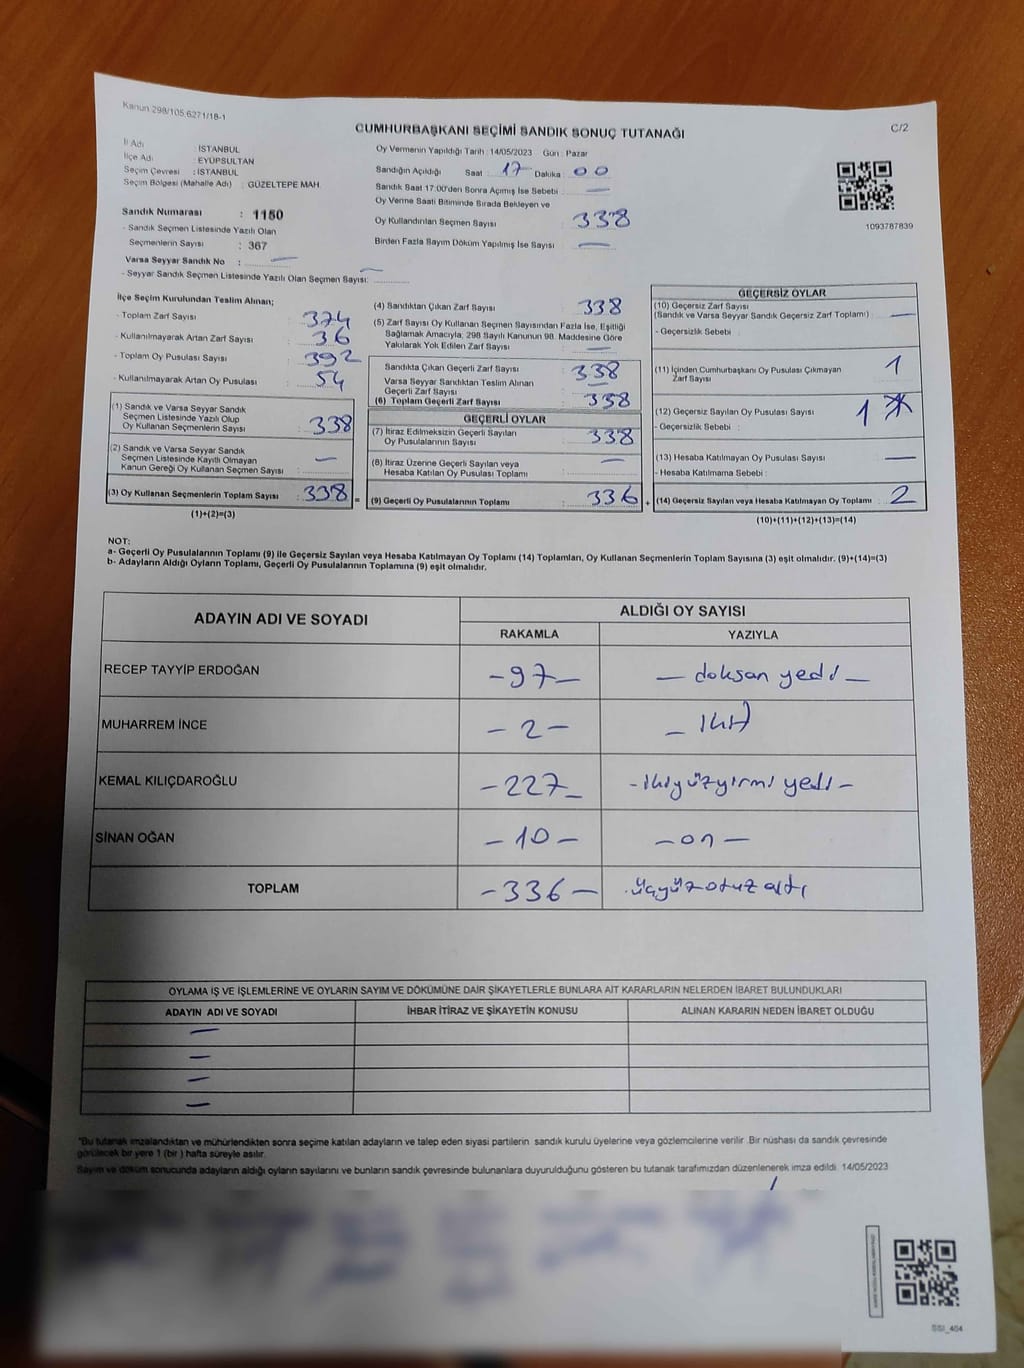 Kanun 298/105.6271/18-1
CUMHURBAŞKANI SEÇİMİ SANDIK SONUÇ TUTANAĞI
C/2
İl Adı : İSTANBUL
İlçe Adı : EYÜPSULTAN
Seçim Çevresi : İSTANBUL
Seçim Bölgesi (Mahalle Adı) : GÜZELTEPE MAH.
Sandık Numarası : 1150
- Sandık Seçmen Listesinde Yazılı Olan
Seçmenlerin Sayısı : 367
Varsa Seyyar Sandık No : —
- Seyyar Sandık Seçmen Listesinde Yazılı Olan Seçmen Sayısı: —
Oy Vermenin Yapıldığı Tarih : 14/05/2023 Gün : Pazar
Sandığın Açıldığı Saat : 17 Dakika : 00
Sandık Saat 17:00'den Sonra Açımış İse Sebebi : —
Oy Verme Saati Bitiminde Sırada Bekleyen ve
Oy Kullandırılan Seçmen Sayısı : 338
Birden Fazla Sayım Döküm Yapılmış İse Sayısı : —
1093787839
İlçe Seçim Kurulundan Teslim Alınan;
- Toplam Zarf Sayısı : 374
- Kullanılmayarak Artan Zarf Sayısı : 36
- Toplam Oy Pusulası Sayısı : 392
- Kullanılmayarak Artan Oy Pusulası : 54
(1) Sandık ve Varsa Seyyar Sandık
Seçmen Listesinde Yazılı Olup
Oy Kullanan Seçmenlerin Sayısı : 338
(2) Sandık ve Varsa Seyyar Sandık
Seçmen Listesinde Kayıtlı Olmayan
Kanun Gereği Oy Kullanan Seçmen Sayısı : —
(3) Oy Kullanan Seçmenlerin Toplam Sayısı : 338 =
(1)+(2)=(3)
(4) Sandıktan Çıkan Zarf Sayısı : 338
(5) Zarf Sayısı Oy Kullanan Seçmen Sayısından Fazla İse, Eşitliği
Sağlamak Amacıyla, 298 Sayılı Kanunun 98. Maddesine Göre
Yakılarak Yok Edilen Zarf Sayısı : —
Sandıkta Çıkan Geçerli Zarf Sayısı : 338
Varsa Seyyar Sandıktan Teslim Alınan
Geçerli Zarf Sayısı : —
(6) Toplam Geçerli Zarf Sayısı : 338
GEÇERLİ OYLAR
(7) İtiraz Edilmeksizin Geçerli Sayılan
Oy Pusulalarının Sayısı : 338
(8) İtiraz Üzerine Geçerli Sayılan veya
Hesaba Katılan Oy Pusulası Toplamı : —
(9) Geçerli Oy Pusulalarının Toplamı : 336 +
GEÇERSİZ OYLAR
(10) Geçersiz Zarf Sayısı
(Sandık ve Varsa Seyyar Sandık Geçersiz Zarf Toplamı) : —
- Geçersizlik Sebebi :
(11) İçinden Cumhurbaşkanı Oy Pusulası Çıkmayan
Zarf Sayısı : 1
(12) Geçersiz Sayılan Oy Pusulası Sayısı : 1
- Geçersizlik Sebebi :
(13) Hesaba Katılmayan Oy Pusulası Sayısı : —
- Hesaba Katılmama Sebebi :
(14) Geçersiz Sayılan veya Hesaba Katılmayan Oy Toplamı : 2
(10)+(11)+(12)+(13)=(14)
NOT:
a- Geçerli Oy Pusulalarının Toplamı (9) ile Geçersiz Sayılan veya Hesaba Katılmayan Oy Toplamı (14) Toplamları, Oy Kullanan Seçmenlerin Toplam Sayısına (3) eşit olmalıdır. (9)+(14)=(3)
b- Adayların Aldığı Oyların Toplamı, Geçerli Oy Pusulalarının Toplamına (9) eşit olmalıdır.
ADAYIN ADI VE SOYADI
ALDIĞI OY SAYISI
RAKAMLA YAZIYLA
RECEP TAYYİP ERDOĞAN -97- - doksan yedi -
MUHARREM İNCE -2- - iki
KEMAL KILIÇDAROĞLU -227- - ikiyüzyirmi yedi -
SİNAN OĞAN -10- -on-
TOPLAM -336- üçyüzotuz altı
OYLAMA İŞ VE İŞLEMLERİNE VE OYLARIN SAYIM VE DÖKÜMÜNE DAİR ŞİKAYETLERLE BUNLARA AİT KARARLARIN NELERDEN İBARET BULUNDUKLARI
ADAYIN ADI VE SOYADI İHBAR İTİRAZ VE ŞİKAYETİN KONUSU ALINAN KARARIN NEDEN İBARET OLDUĞU
—
—
—
—
"Bu tutanak imzalandıktan ve mühürlendikten sonra seçime katılan adayların ve talep eden siyasi partilerin sandık kurulu üyelerine veya gözlemcilerine verilir. Bir nüshası da sandık çevresinde
görülecek bir yere 1 (bir) hafta süreyle asılır.
Sayım ve döküm sonucunda adayların aldığı oyların sayılarını ve bunların sandık çevresinde bulunanlara duyurulduğunu gösteren bu tutanak tarafımızdan düzenlenerek imza edildi. 14/05/2023
SSI_464